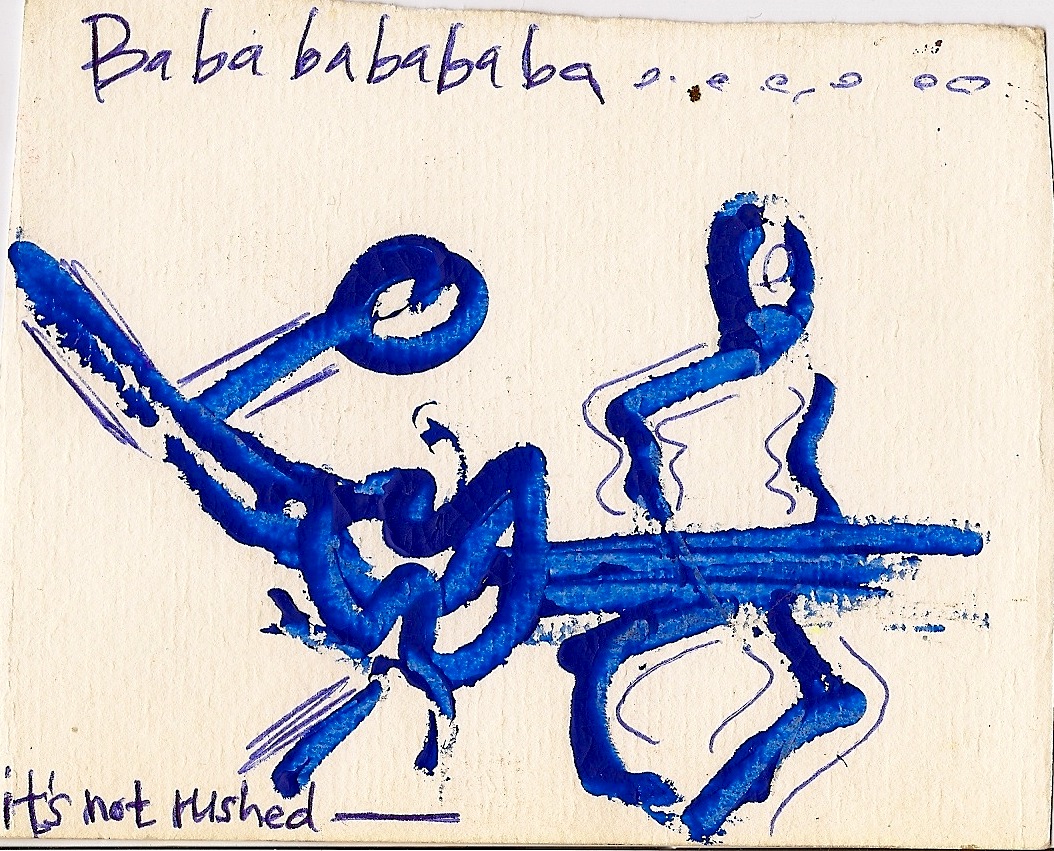 Ba ba bababa ba
it's not rushed —